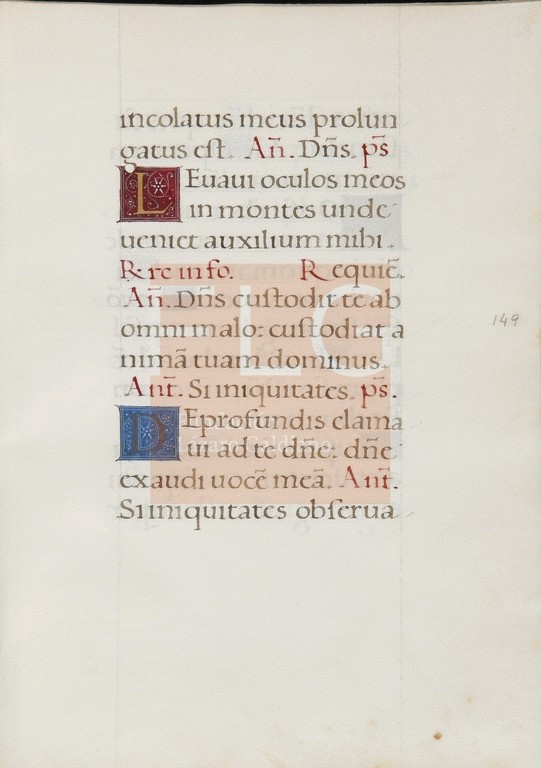 incolatus meus prolun
gatus est. Añ. Dñs. ps̄
Leuaui oculos meos
in montes unde
ueniet auxilium mihi.
Requiē.
Añ. Dñs custodit te ab
omni malo: custodiat a
nimā tuam dominus.
Añt. Si iniquitates. ps̄.
De profundis clama
ui ad te dñe: dñe
exaudi uocē meā. Añt.
Si iniquitates obserua
149
FLG
Lázaro Galdiano